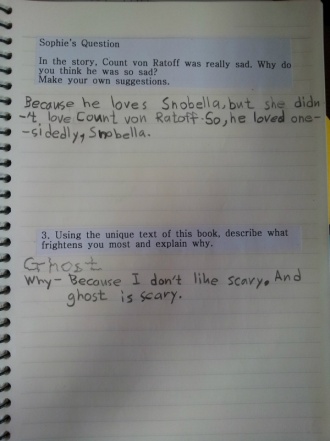 Sophie's Question
In the story, Count von Ratoff was really sad. Why do
you think he was so sad?
Make your own suggestions.
Because he loves Snobella, but she didn
-'t love Count von Ratoff. So, he loved one-
-sidedly, Snobella.
3. Using the unique text of this book, describe what
frightens you most and explain why.
Ghost
Why - Because I don't like scary. And
ghost is scary.